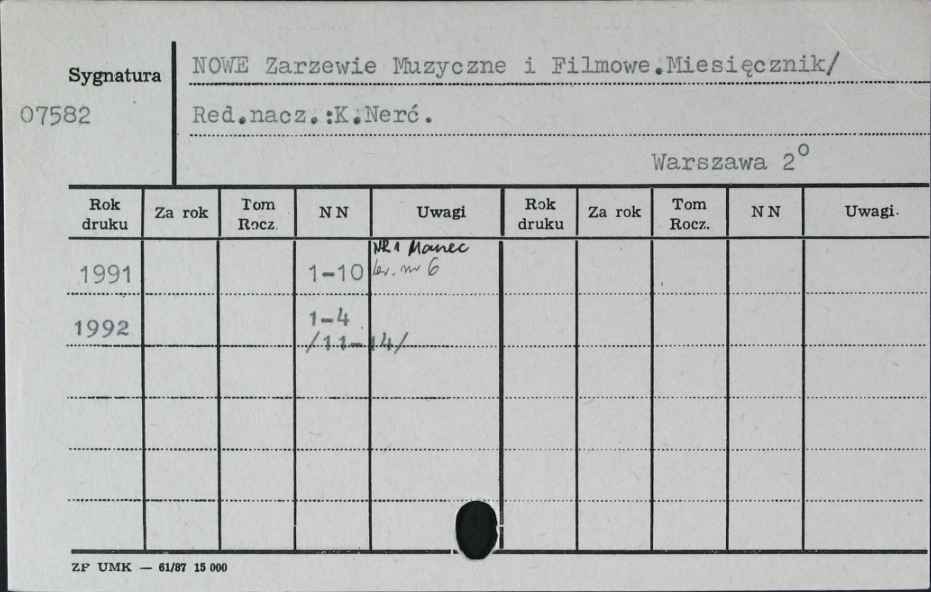 Sygnatura
NOWE Zarzewie Muzyczne i Filmowe.Miesięcznik/
07582
Red.nacz.:K.Nerć.
Warszawa 2°
Rok druku Za rok Tom Rocz. NN Uwagi Rok druku Za rok Tom Rocz. NN Uwagi
NR 1
1991 1-10 nr 6
1992 1-4
/11-14/
ZP UMK — 61/87 15 000